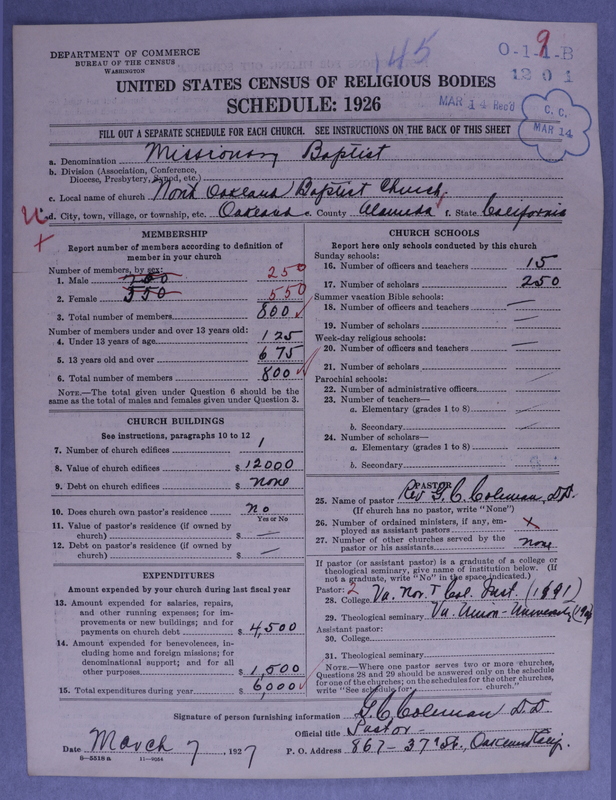 145
9
O-1-1-B
1201
DEPARTMENT OF COMMERCE
BUREAU OF THE CENSUS
WASHINGTON
UNITED STATES CENSUS OF RELIGIOUS BODIES
SCHEDULE: 1926
MAR 14 Rec'd
C. C.
MAR 14
FILL OUT A SEPARATE SCHEDULE FOR EACH CHURCH. SEE INSTRUCTIONS ON THE BACK OF THIS SHEET
a. Denomination Missionary Baptist
b. Division (Association, Conference,
Diocese, Presbytery, Synod, etc.)
c. Local name of church North Oakland Baptist Church.
d. City, town, village, or township, etc. Oakland e. County Alameda f. State California
MEMBERSHIP
Report number of members according to definition of
member in your church
Number of members, by sex:
1. Male 250
2. Female 550 550
3. Total number of members 800
Number of members under and over 13 years old:
4. Under 13 years of age 125
5. 13 years old and over 675
6. Total number of members 800
NOTE.—The total given under Question 6 should be the
same as the total of males and females given under Question 3.
CHURCH BUILDINGS
See instructions, paragraphs 10 to 12
7. Number of church edifices 1
8. Value of church edifices $12000
9. Debt on church edifices $ none
10. Does church own pastor's residence? no
Yes or No
11. Value of pastor's residence (if owned by
church) $ —
12. Debt on pastor's residence (if owned by
church) $ —
EXPENDITURES
Amount expended by your church during last fiscal year
13. Amount expended for salaries, repairs,
and other running expenses; for im-
provements or new buildings; and for
payments on church debt $4,500
14. Amount expended for benevolences, in-
cluding home and foreign missions; for
denominational support; and for all
other purposes $1,500
15. Total expenditures during year $6,000
CHURCH SCHOOLS
Report here only schools conducted by this church
Sunday schools:
16. Number of officers and teachers 15
17. Number of scholars 250
Summer vacation Bible schools:
18. Number of officers and teachers —
19. Number of scholars —
Week-day religious schools:
20. Number of officers and teachers —
21. Number of scholars —
Parochial schools:
22. Number of administrative officers —
23. Number of teachers—
a. Elementary (grades 1 to 8) —
b. Secondary —
24. Number of scholars—
a. Elementary (grades 1 to 8)
b. Secondary
PASTOR
25. Name of pastor Rev G. C. Coleman, D.D.
(If church has no pastor, write "None")
26. Number of ordained ministers, if any, em-
ployed as assistant pastors x
27. Number of other churches served by the
pastor or his assistants none
If pastor (or assistant pastor) is a graduate of a college or
theological seminary, give name of institution below. (If
not a graduate, write "No" in the space indicated.)
Pastor: 2
28. College Va. Nor. & Col. Inst. (1891)
29. Theological seminary Va. Union-University
Assistant pastor:
30. College
31. Theological seminary
NOTE.—Where one pastor serves two or more churches,
Questions 28 and 29 should be answered only on the schedule
for one of the churches; on the schedules for the other churches,
write "See schedule for church."
Signature of person furnishing information G. C. Coleman D.D.
Official title Pastor-
Date March 7, 1927 P. O. Address 867- 37th St., Oakland Calif.
8—5518a 11—9054